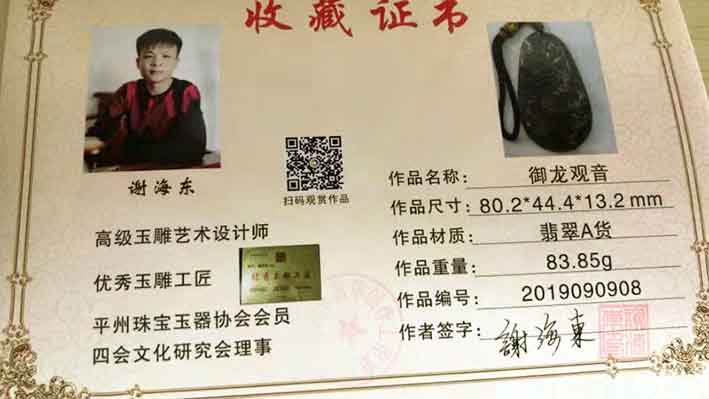 收藏证书
谢海东
扫码观赏作品
高级玉雕艺术设计师
优秀玉雕工匠
平州珠宝玉器协会会员
四会文化研究会理事
作品名称: 御龙观音
作品尺寸: 80.2*44.4*13.2mm
作品材质: 翡翠A货
作品重量: 83.85g
作品编号: 2019090908
作者签字: 謝海東